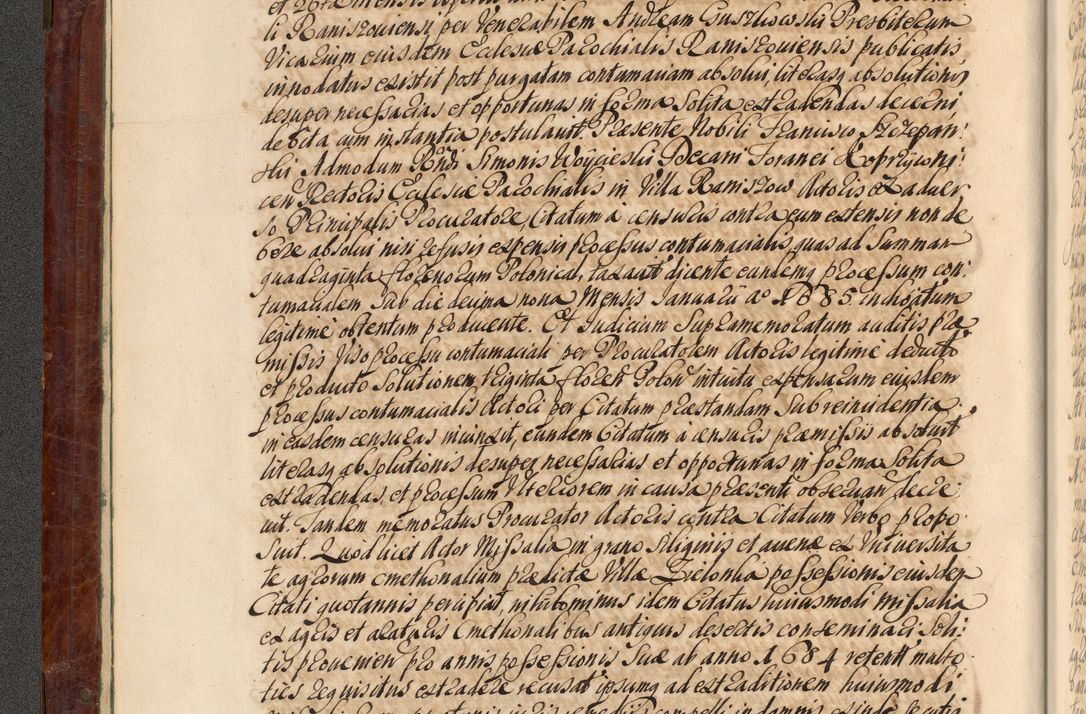 li Raniszouiensi, per Venerabilem Andream Guszkowski Presbiterum
Vicarium eiusdem Ecclesiæ Parochialis Raniszouiensis publicatis
innodatus existit post purgatam contumaciam absolui, literasq absolutionis
desuper necessarias et opportunas in forma Solita extradendas decerni
debita cum instantia postulauit. Præsente Nobili Francisco Szczepan:
ski Admodum Rndi Simonis Woycieski Decani Foranei Koprzywni:
cen Rectoris Ecclesiæ Parochialis in Villa Raniszow Actoris ex aduer
so Principalis Procuratore, Citatum à censuris contra eum extensis non de
bere absolui nisi refusis expensis processus contumacialis, quas ad Summam
quadraginta florenorum Polonical, taxauit dicente eundemq processum con:
tumacialem Sub die decima nona Mensis Januarii ao 1685. inchoatum
legitime obtentum producente. Et Judicium Supramemoratum auditis præ
missis Viso processu contumaciali per Procuratorem Actoris legitime deducto
et producto Solutionem triginta floren Polon intuitu expensarum eiusdem
processus contumacialis Actori per Citatum præstandam Sub reincidentia
in easdem censuras iniunxit, eundem Citatum à censuris præmissis absoluit
literasq absolutionis desuper necessarias et opportunas in forma Solita
extradendas, et processum Vlteriorem in causa præsenti obseruan decre:
uit. Tandem memoratus Procurator Actoris contra Citatum Verbo propo:
Suit. Quod licet Actor Missalia in grano Siliginis et auenæ ex Vniuersita
te agrorum cmethonalium prædictæ Villæ Zielonka possessionis eiusdem
Citati quotannis percipiat, nihilominus idem Citatus huiusmodi missalia
ex agris et araturis Cmethonalibus antiquis desertis conseminari Soli:
tis prouenien pro annis possessionis Suæ ab anno 1684 retent multo
ties requisitus extradere recusat ipsumq ad extraditionem huiusmodi